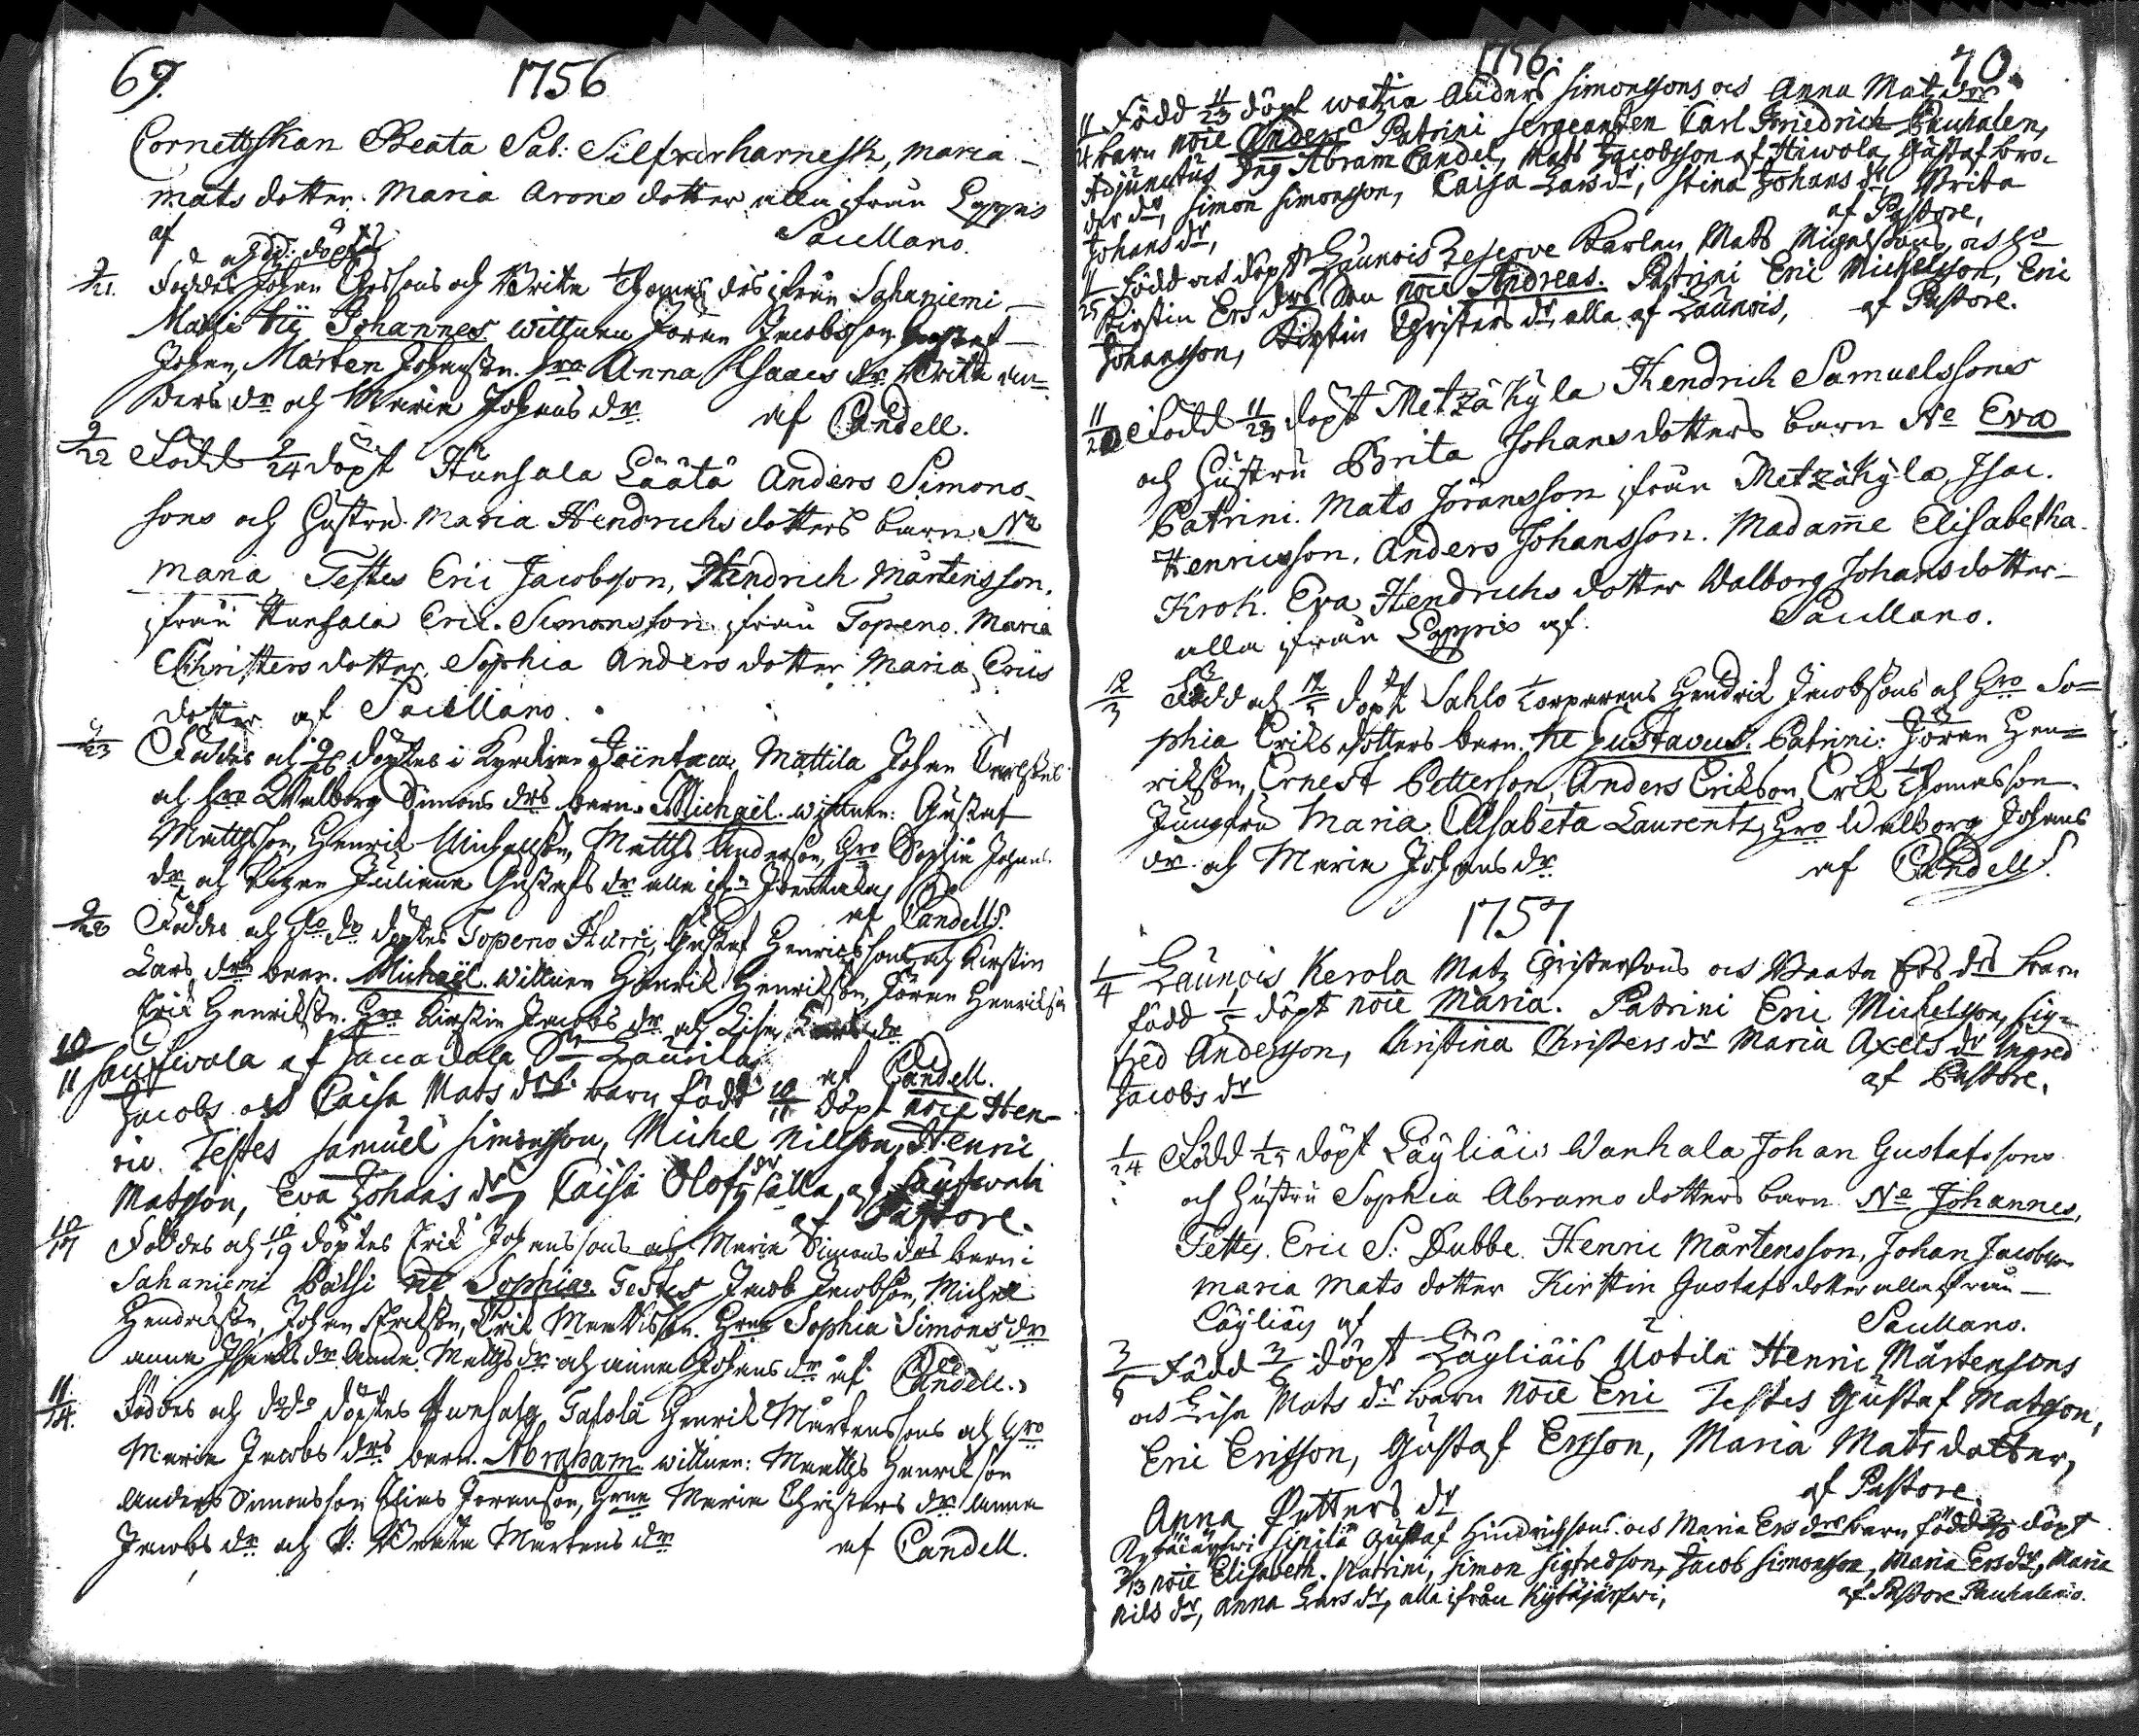 69.
1756
Cornettskan Beata Sab: Silfverharnesk, maria
mats dotter. Maria Arons dotter alla ifrån Loppis
af Paullano.
och dito döptes
9/21. Föddes Johan Thossons och Brita Thomas drs ifrån Sahaniemi
Matti Johannes wittnen Jöran Jacobsson Gustaf
Johan, Mårten Johansson. Hro Anna Isaacs dr Brita An=
ders dr och Maria Johans dr af Candell.
9/22 Född 9/24 döpt Hunsala Läätä Anders Simons
sons och Hustru Maria Hendrichs dotters barn Ne
maria Testes Eric Jacobsson, Hendrich Mårtensson,
ifrån Hunsala Eric Simonsson ifrån Topeno. Maria
Christers dotter, Sophia Anders dotter Maria Erics
dotter af Paullano.
9/23 Föddes och 9/26 döptes i Kyrckian Mattila Johan
och Hro Walborg Simons drs barn. Michaël. wittnen: Gustaf
Mattsson, Henrik Michelsson, Matths Andersson, Hro Sophia Johans
dr och Pigan Juliana Gustafs dr alla
af Candell.
9/28 Föddes och do do döptes Topeno Hurri, Gustaf Henricssons och Kirstin
Lars drs barn. Michaël. wittnen Henrik Henriksson, Jöran Henriksson
Erik Henriksson. Hro Kirstin Jacobs dr och Lisa Lars dr
af Candell.
10/11 Jacobs och Caisa Mats drs barn född 10/11 döpt noie Hen-
ric. Testes Samuel Simonsson, Michel Nillson, Henric
Matsson, Eva Johans dr Caisa Olofs dr alla af
af Pastore.
10/17 Föddes och 10/19 döptes Erik Johanssons och Maria Simons drs barn i
Sahaniemi Pälsi Ne Sophia. Testes Jacob Jacobsson, Michel
Hendricsson, Johan Eriksson, Erik Markusson. Hro Sophia Simons dr
anna dr Anna Matths dr och anna Johans dr af Candell.
11/14. Föddes och do do döptes Hunsala Tafola Henrik Mårtenssons och Hro
Maria Jacobs drs barn. Abraham. wittnen: Matths Henriksson
Anders Simonsson Elias Joransson, Hrna Maria Christers dr Anna
Jacobs dr och P: Beata Mårtens dr af Candell.
1756. 70.
11/ Född 11/23 döpt Anders Simonssons och Anna Mats drs
barn noie Anders Patrini Sergeanten Carl Friedrich Pauhalen,
Adjunctus Abram Candel, Mats Jacobsson af Hewola, Gustaf
Simon Simonsson, Caisa Lars dr, Stina Johans dr, Brita
Johans dr, af Pastore,
11/25 Född och döpt Launois Reserve Karlen Mats Migelssons och Ho
Kirstin Ers drs Son noie Andreas. Patrini Eric Michelsson, Eric
Johansson, Kirstin Christers dr alla af Launois, af Pastore.
11/20 Född 11/23 döpt Metzäkÿla Hendrich Samuelssons
och Hustru Brita Johansdotters barn Ne Eva
Patrini. Mats Jöransson ifrån Metzäkÿla, Isac.
Henricsson. Anders Johansson. Madame Elisabetha
Krok. Eva Hendrichs dotter Walborg Johansdotter
alla ifrån Loppis af. Paullano.
12/3 Född och 12/5 döpt Sahlo Torparens Hendrik Jacobssons och Hro So=
phia Eriks dotters barn. Ne Gustavus. Patrini: Jöran Hen=
riksson, Ernest Petterson, Anders Erikson, Erik Thomasson
Jungfru Maria Elisabeta Laurentz, Hro Walborg Johans
dr och Maria Johans dr af Candell.
1757
1/4 Launois Kerola Mats Christerssons och Beata Ers drs barn
född 1/5 döpt noie Maria. Patrini Eric Michelsson, Sig-
fred Andersson, Christina Christers dr Maria Axels dr Ingred
Jacobs dr af Pastore,
1/24 Född 1/25 döpt Läÿliäis Wanhala Johan Gustafssons
och Hustru Sophia Abrams dotters barn Ne Johannes,
Testes. Eric S: Dubbe. Henric Mårtensson, Johan Jacobsson
maria mats dotter Kirstin Gustafsdotter alla ifrån
Läÿliäis af Paullano.
3/5 Född 3/6 döpt Läÿliäis Uotila Henric Mårtensons
och Lisa Mats dr barn noie Eric Testes Gustaf Matsson,
Eric Ericsson, Gustaf Ersson, Maria Matsdotter,
Anna Petters dr af Pastore
Kytäjäryfwi Sipilä Gustaf Hindrichssons och Maria Ers drs barn född döpt
3/13 noie Elisabeth. Patrini, Simon Sigfredson, Jacob Simonsson, Maria Ersdr, Maria
Nils dr, Anna Lars dr, alla ifrån Kÿtäjärfwi, af Pastore Pauhalenio.